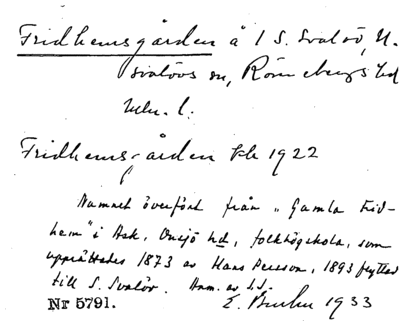 Fridhemsgården å 1 S. Svalöv, N.
Svalövs sn, Rönnebergs hd
Mlm. l.
Fridhemsgården Ek 1922
Namnet överfört från "Gamla Frid-
hem" i Ask, Onsjö hd, folkhögskola, som
upprättades 1873 av Hans Persson, 1893 flyttad
till S. Svalöv. Anm. av S.S.
Nr 5791.
E. 1933